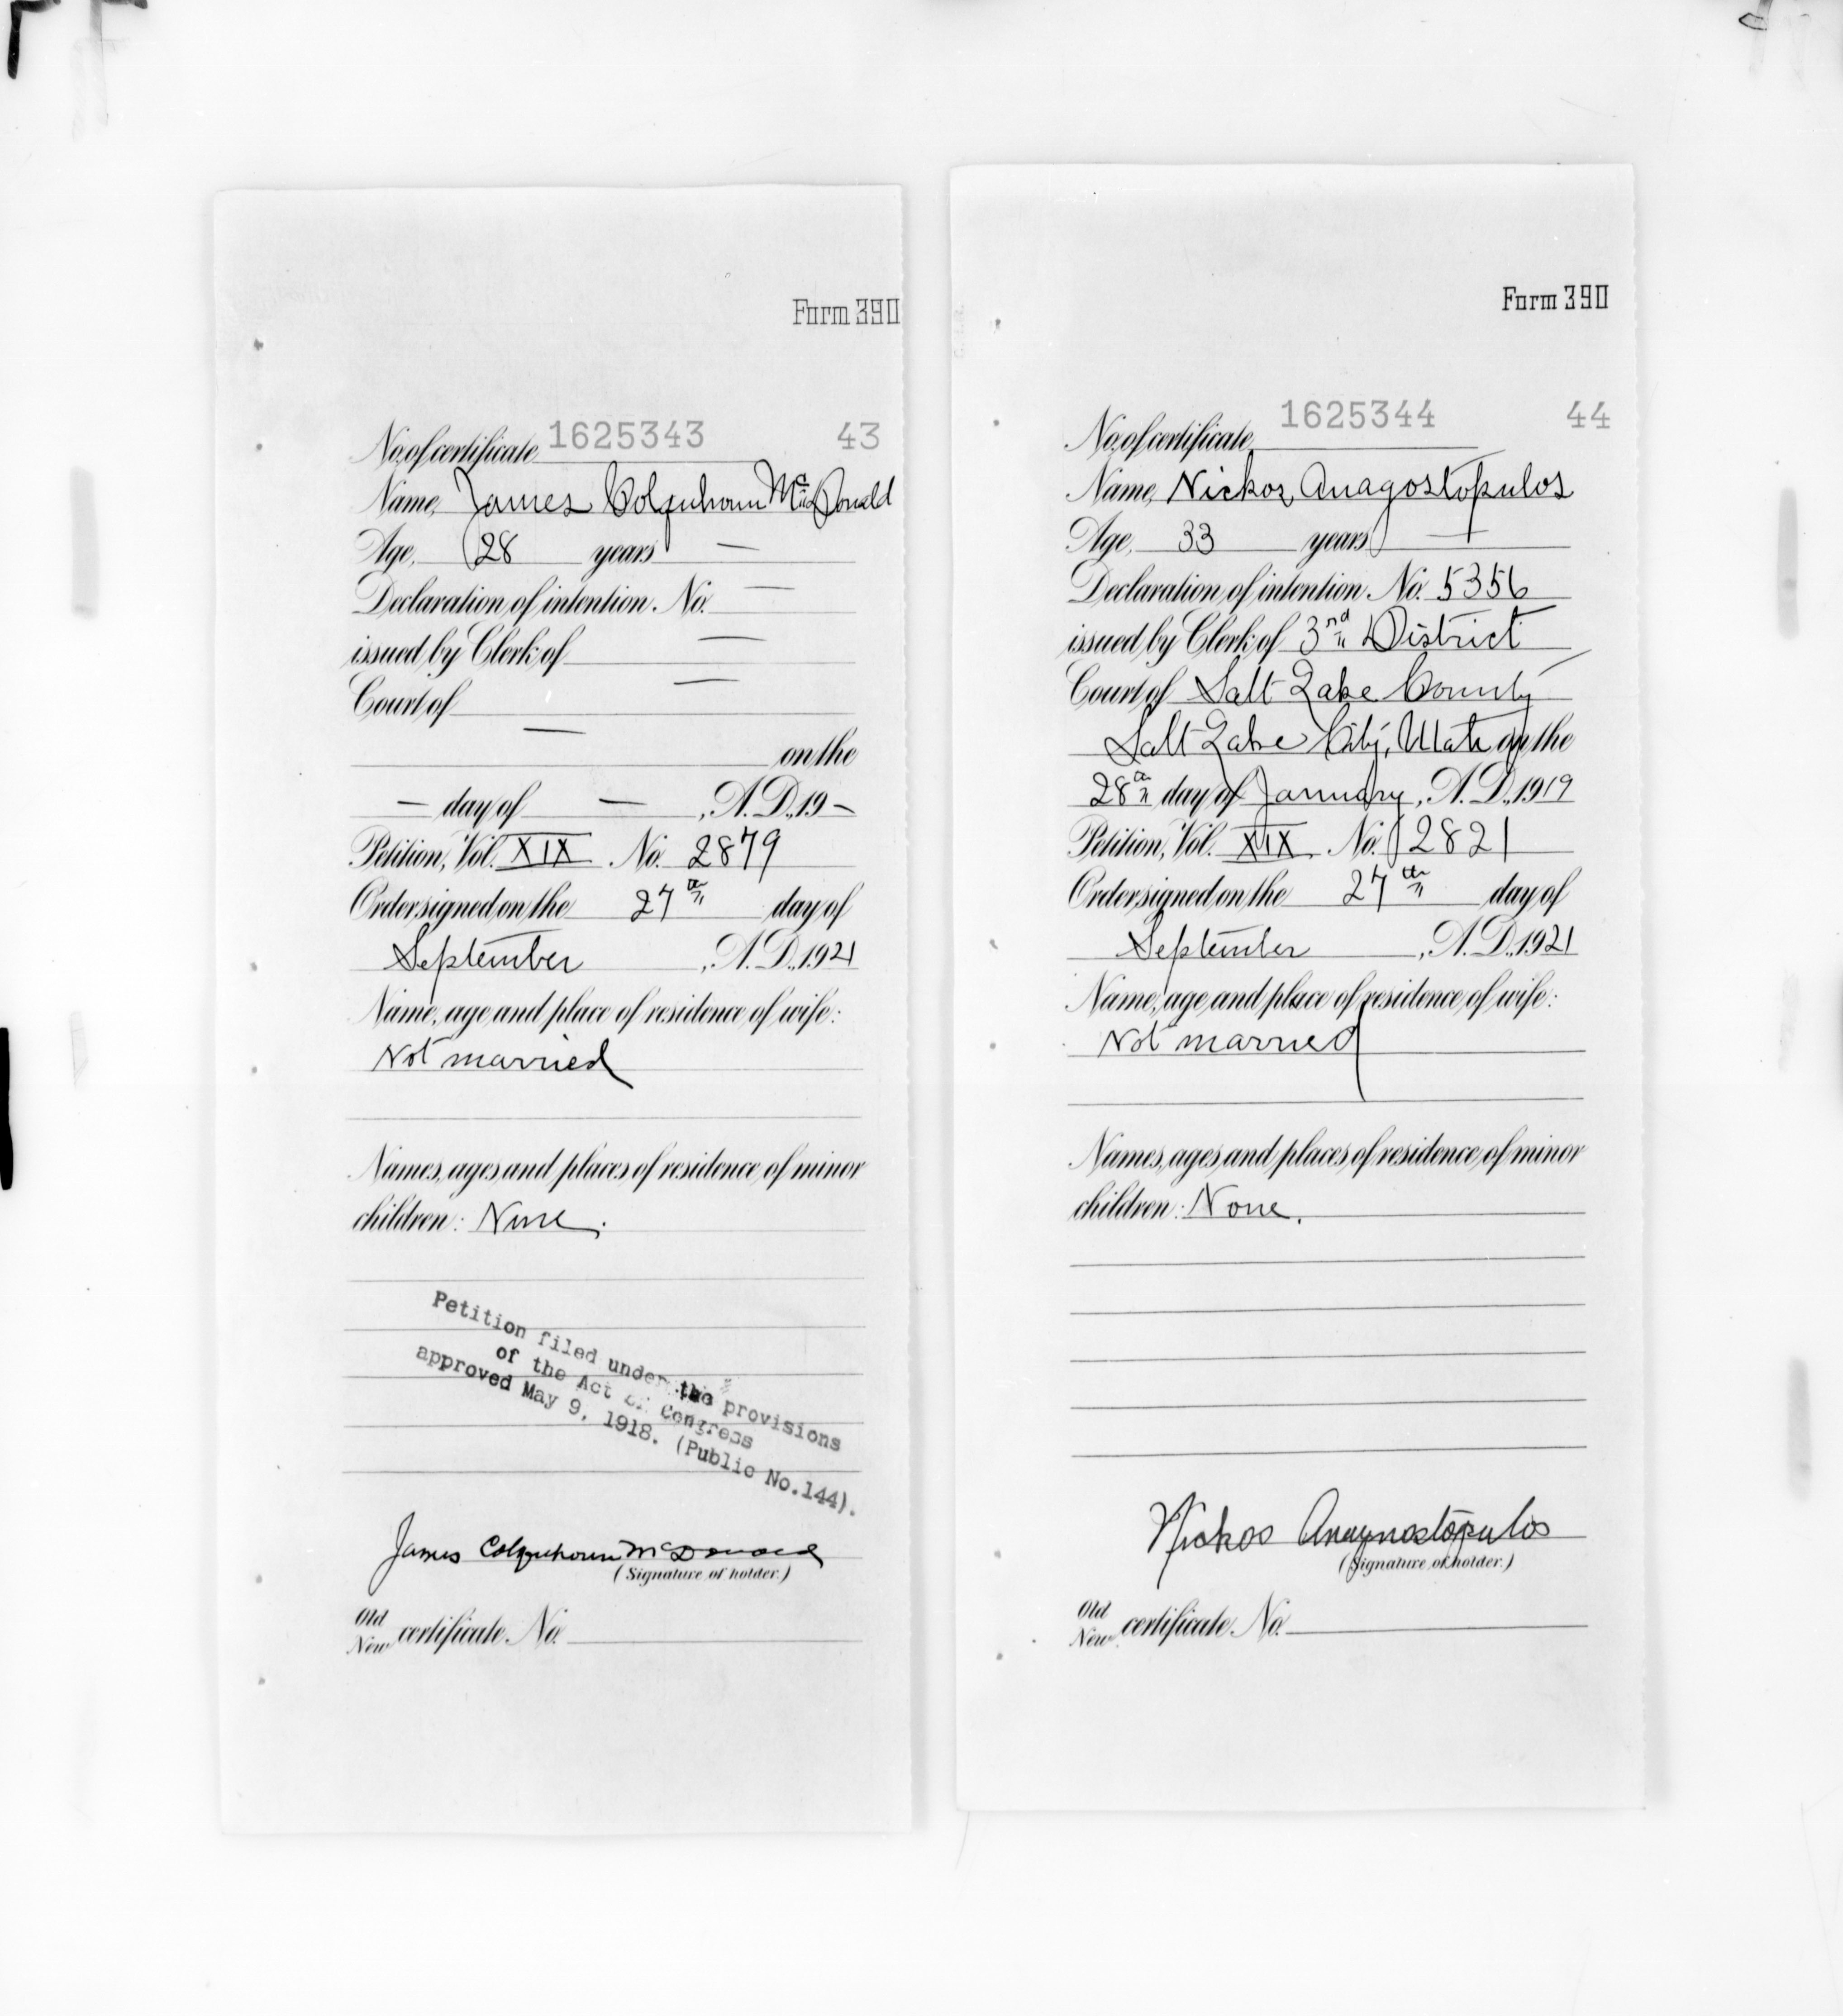 Form 390
No. of certificate 1625343 43
Name, James Colquhoun McDonald
Age, 28 years —
Declaration of intention No. —
issued by Clerk of —
Court of —
— on the
— day of — , A. D., 19 —
Petition, Vol. XIX No. 2879
Order signed on the 27th day of
September , A. D., 1921
Name, age and place of residence of wife:
Not married
Names, ages and places of residence of minor
children: None.
Petition filed under the provisions
of the Act of Congress
approved May 9, 1918. (Public No.144).
James Colquhoun McDonald
(Signature of holder.)
Old
New certificate No.
Form 390
No. of certificate 1625344 44
Name, Nickos Anagostopulos
Age, 33 years —
Declaration of intention No. 5356
issued by Clerk of 3rd District
Court of Salt Lake County
Salt Lake City, Utah on the
28th day of January, A. D., 1919
Petition, Vol. XIX No. 2821
Order signed on the 27th day of
September , A. D., 1921
Name, age and place of residence of wife:
Not married
Names, ages and places of residence of minor
children: None.
Nickos Anagnostopulos
(Signature of holder.)
Old
New certificate No.